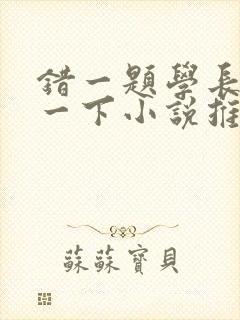 錯一題學長
一下小說推
蘇蘇寶貝